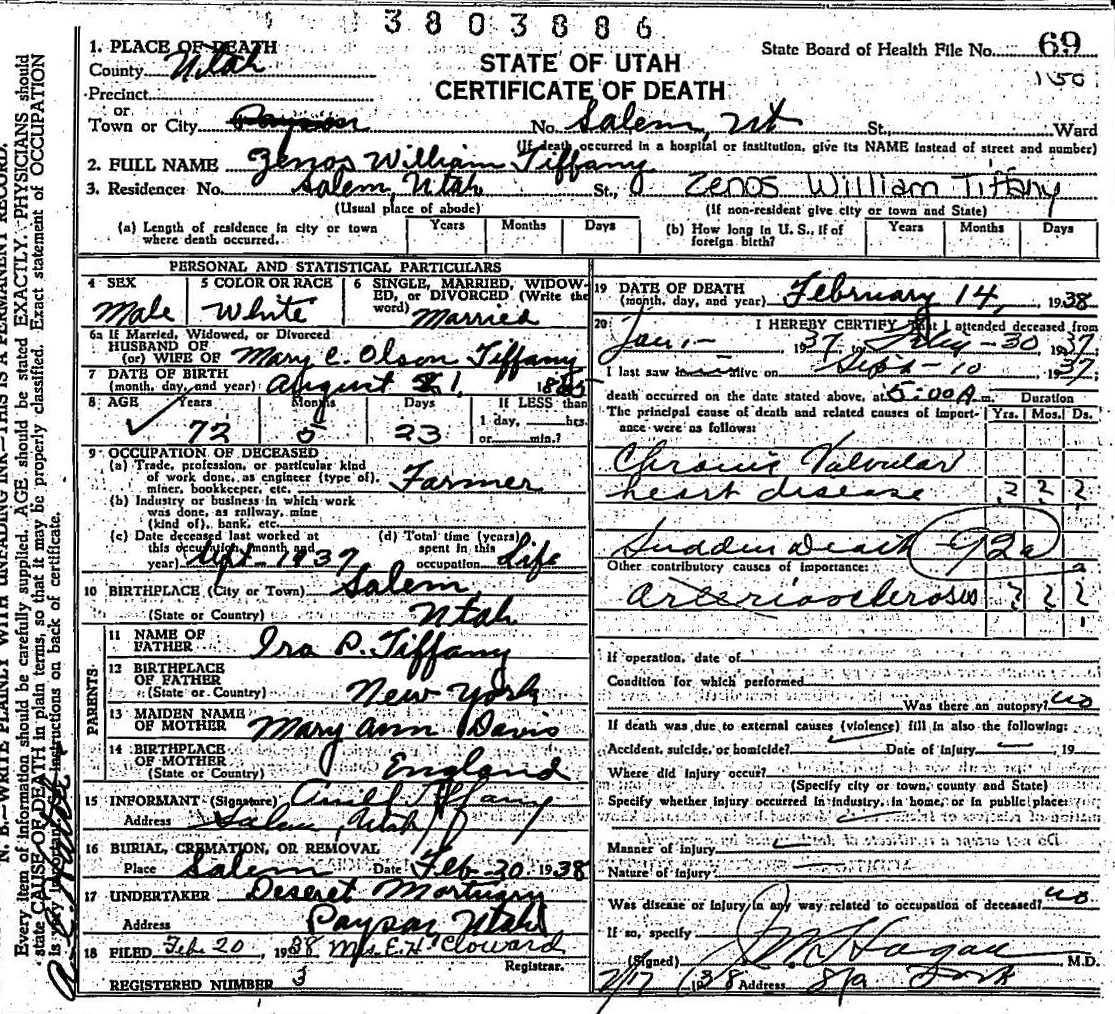 3803886
1. PLACE OF DEATH
County Utah
Precinct
or
Town or City Payson No. Salem, Ut St., Ward
STATE OF UTAH
CERTIFICATE OF DEATH
State Board of Health File No. 69
150
(If death occurred in a hospital or institution, give its NAME instead of street and number)
2. FULL NAME Zenos William Tiffany
3. Residence: No. Salem, Utah St., Zenos William Tiffany
(Usual place of abode) (If non-resident give city or town and State)
(a) Length of residence in city or town where death occurred. Years Months Days
(b) How long in U. S., if of foreign birth? Years Months Days
PERSONAL AND STATISTICAL PARTICULARS
4 SEX 5 COLOR OR RACE 6 SINGLE, MARRIED, WIDOW-
ED, or DIVORCED (Write the
word)
Male White Married
6a If Married, Widowed, or Divorced
HUSBAND OF
(or) WIFE OF Mary C. Olson Tiffany
7 DATE OF BIRTH
(month, day, and year) August 21, 1865
8 AGE Years Months Days If LESS than
1 day, hrs.
72 5 23 or min.?
9 OCCUPATION OF DECEASED
(a) Trade, profession, or particular kind
of work done, as engineer (type of),
miner, bookkeeper, etc. Farmer
(b) Industry or business in which work
was done, as railway, mine
(kind of), bank, etc.
(c) Date deceased last worked at
this occupation (month and
year) Sept - 1937
(d) Total time (years)
spent in this
occupation Life
10 BIRTHPLACE (City or Town) Salem,
(State or Country) Utah
PARENTS
11 NAME OF
FATHER Ira P. Tiffany
12 BIRTHPLACE
OF FATHER
(State or Country) New York
13 MAIDEN NAME
OF MOTHER Mary Ann Davis
14 BIRTHPLACE
OF MOTHER
(State or Country) England
15 INFORMANT (Signature) Tiffany
Address Salem, Utah
16 BURIAL, CREMATION, OR REMOVAL
Place Salem Date Feb-20 1938
17 UNDERTAKER Deseret Mortuary
Address Payson, Utah
18 FILED Feb. 20, 1938 Mrs. E. H. Cloward
Registrar.
REGISTERED NUMBER 3
19 DATE OF DEATH
(month, day, and year) February 14, 1938
20 I HEREBY CERTIFY That I attended deceased from
Jan. - 1937 to - 30 1937
I last saw alive on Sept - 10 1937
death occurred on the date stated above, at 5:00 A. m. Duration
The principal cause of death and related causes of import-
ance were as follows: Yrs. Mos. Ds.
Chronic Valvular
heart disease ? ? ?
Sudden Death - 92a
Other contributory causes of importance:
Arteriosclerosis ? ? ?
If operation, date of
Condition for which performed
Was there an autopsy? no
If death was due to external causes (violence) fill in also the following:
Accident, suicide, or homicide? Date of injury 19
Where did injury occur?
(Specify city or town, county and State)
Specify whether injury occurred in industry, in home, or in public place:
Manner of injury
Nature of injury
Was disease or injury in any way related to occupation of deceased? no
If so, specify
(Signed) Hagan M.D.
2/17 1938 Address Spa. Fork
N. B.—WRITE PLAINLY WITH UNFADING INK—THIS IS A PERMANENT RECORD.
Every item of information should be carefully supplied. AGE should be stated EXACTLY. PHYSICIANS should
state CAUSE OF DEATH in plain terms, so that it may be properly classified. Exact statement of OCCUPATION
is very important. instructions on back of certificate.